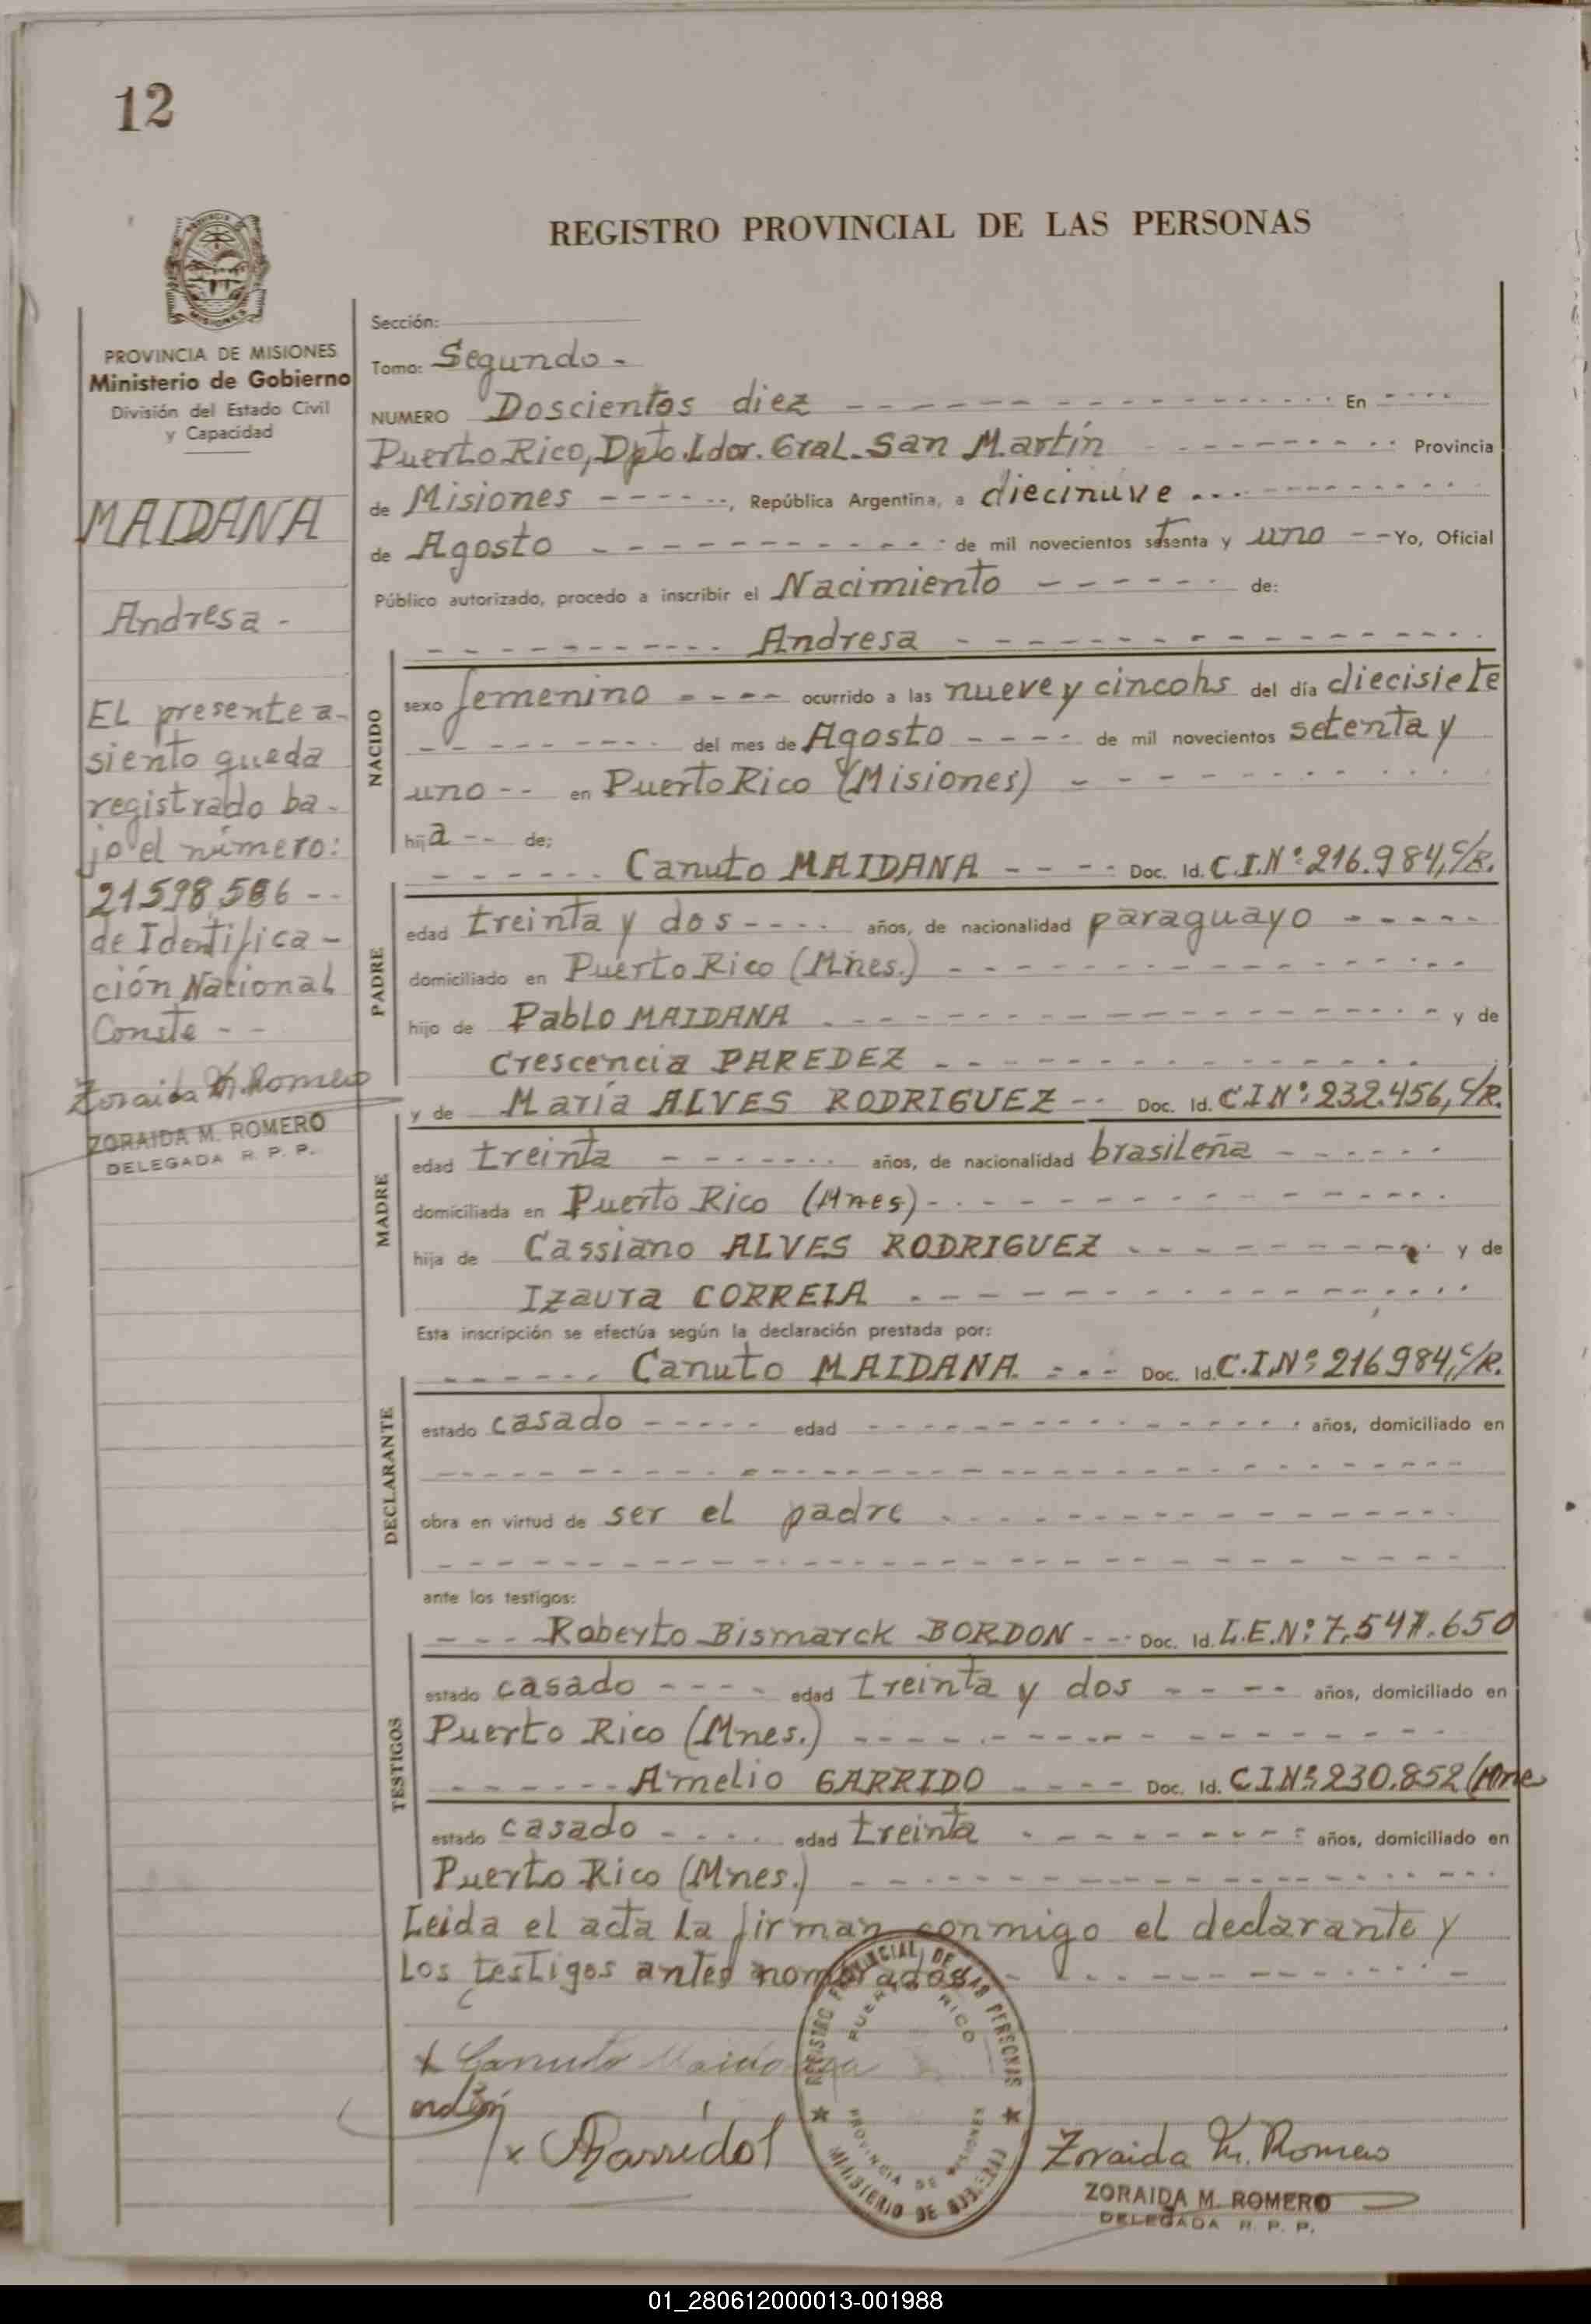 12
REGISTRO PROVINCIAL DE LAS PERSONAS
PROVINCIA DE MISIONES
MISIONES
PROVINCIA DE MISIONES
Ministerio de Gobierno
División del Estado Civil
y Capacidad
MAIDANA
Andresa -
EL presente a-
siento queda
registrado ba-
jo el número:
21598,586 --
de Identifica-
ción Nacional
Conste - -
Zoraida M. Romero
ZORAIDA M. ROMERO
DELEGADA R. P. P.
Sección:
Tomo: Segundo -
NUMERO Doscientos diez - - - - En - - - -
Puerto Rico, Dpto. Ldor. Gral. San Martín - - - - Provincia
de Misiones - - - -, República Argentina, a diecinuve - - - -
de Agosto - - - - de mil novecientos setenta y uno - - Yo, Oficial
Público autorizado, procedo a inscribir el Nacimiento - - - - de:
- - - - Andresa - - - -
NACIDO
sexo femenino - - - - ocurrido a las nueve y cinco hs del día diecisiete
- - - - del mes de Agosto - - - - de mil novecientos setenta y
uno - - en Puerto Rico (Misiones) - - - -
hija - - de:
- - - - Canuto MAIDANA - - - - Doc. Id. C.I.Nº 216.984, C/R.
PADRE
edad treinta y dos - - - - años, de nacionalidad paraguayo - - - -
domiciliado en Puerto Rico (Mnes.) - - - -
hijo de Pablo MAIDANA - - - - y de
Crescencia PAREDEZ - - - -
y de María ALVES RODRIGUEZ - - Doc. Id. C I Nº 232.456, C/R.
MADRE
edad treinta - - - - años, de nacionalidad brasileña - - - -
domiciliada en Puerto Rico (Mnes) - - - -
hija de Cassiano ALVES RODRIGUEZ - - - - y de
Izaura CORREIA - - - -
Esta inscripción se efectúa según la declaración prestada por:
- - - - Canuto MAIDANA - - - Doc. Id. C.I.Nº 216984, C/R.
DECLARANTE
estado casado - - - - edad - - - - años, domiciliado en
- - - -
obra en virtud de ser el padre - - - -
- - - -
ante los testigos:
- - - Roberto Bismarck BORDON - - Doc. Id. L.E.Nº 7.541.650
TESTIGOS
estado casado - - - - edad treinta y dos - - - - años, domiciliado en
Puerto Rico (Mnes.) - - - -
- - - - Amelio GARRIDO - - - - Doc. Id. C I Nº 230.852 (Mne
estado casado - - - - edad treinta - - - - años, domiciliado en
Puerto Rico (Mnes.) - - - -
Leida el acta la firman conmigo el declarante y
los testigos antes nombrados - - - -
REGISTRO PROVINCIAL DE LAS PERSONAS
PUERTO RICO
PROVINCIA DE MISIONES
MINISTERIO DE GOBIERNO
x Canuto Maidana
x AGarrido
Zoraida M. Romero
ZORAIDA M. ROMERO
DELEGADA R. P. P.
01_280612000013-001988